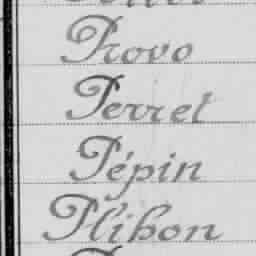 Provo
Perret
Pépin
Plihon